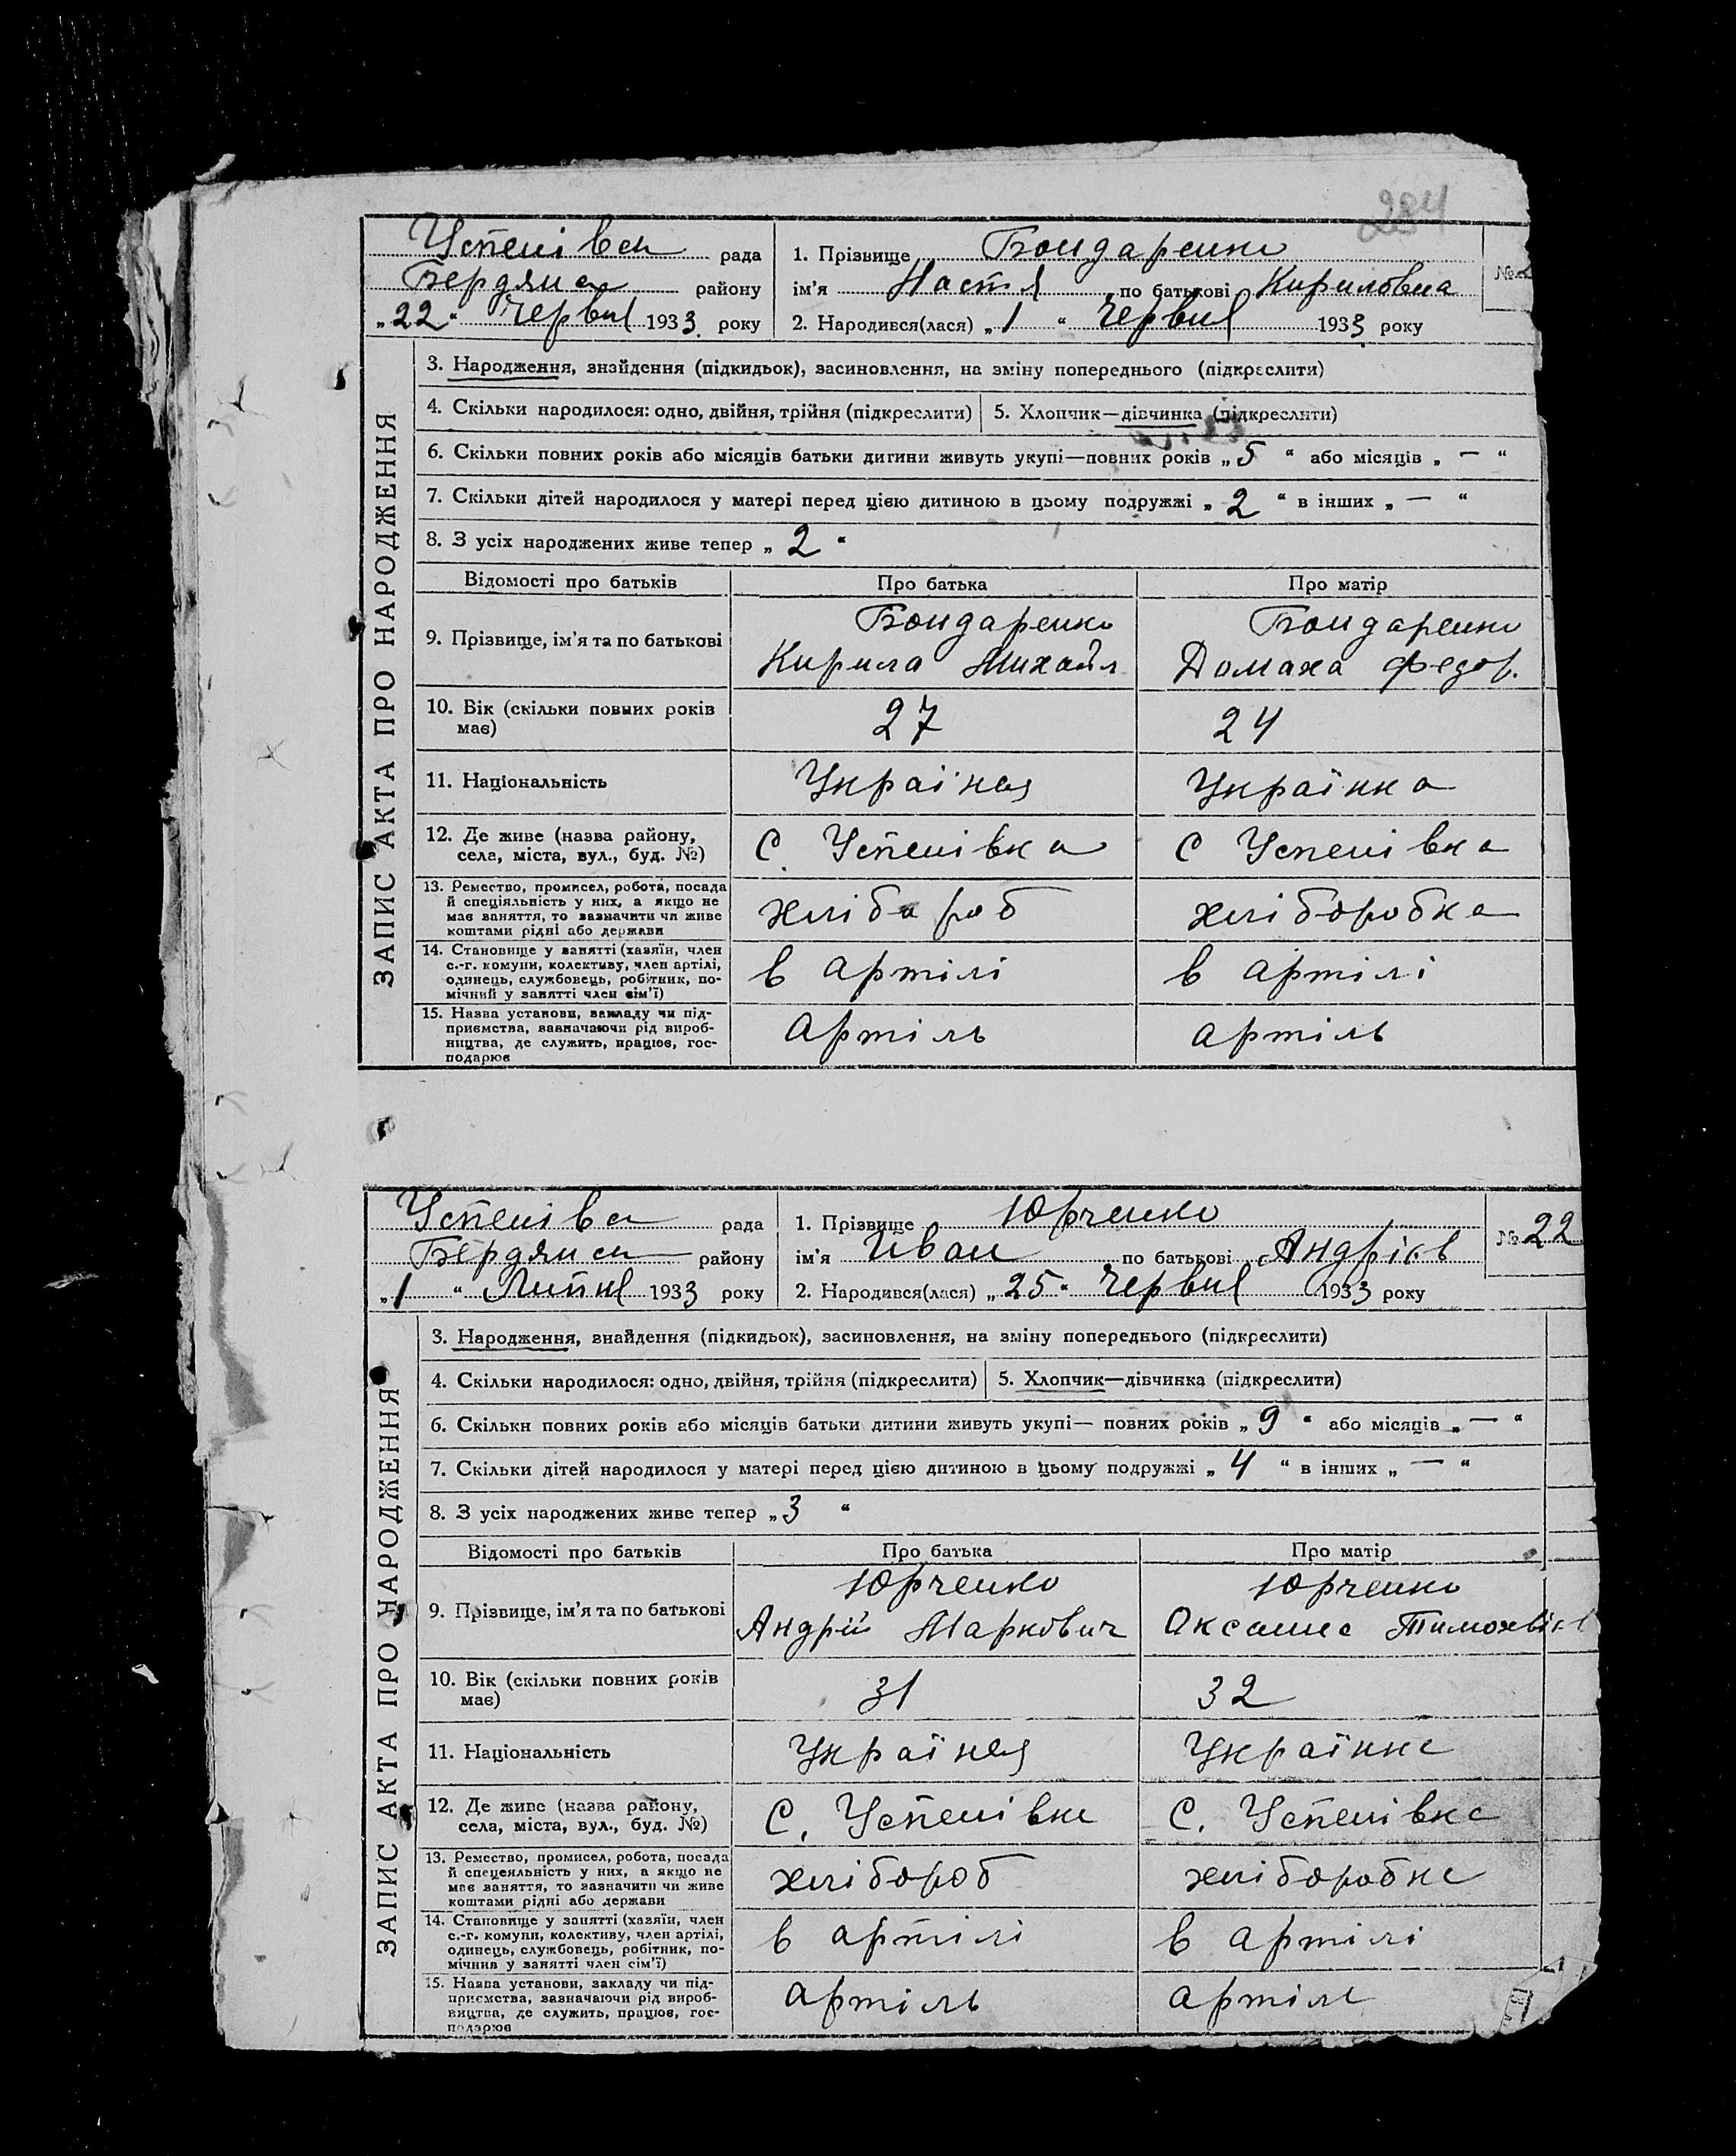 284
Успенівсн рада
Бердянсн району
„22“ Червня 1933 року
1. Прізвище Бондаренко
ім'я Настя по батькові Кириловна
2. Народився(лася) „1“ Червня 1933 року
№
ЗАПИС АКТА ПРО НАРОДЖЕННЯ
3. Народження, знайдення (підкидьок), засиновлення, на зміну попереднього (підкреслити)
4. Скільки народилося: одно, двійня, трійня (підкреслити) 5. Хлопчик—дівчинка (підкреслити)
6. Скільки повних років або місяців батьки дитини живуть укупі—повних років „5“ або місяців „—“
7. Скільки дітей народилося у матері перед цією дитиною в цьому подружжі „2“ в інших „—“
8. З усіх народжених живе тепер „2“
Відомості про батьків Про батька Про матір
9. Прізвище, ім'я та по батькові
Бондаренко
Кирила Михайл
Бондаренко
Домаха Федор.
10. Вік (скільки повних років
має)
27
24
11. Національність Українец Українка
12. Де живе (назва району,
села, міста, вул., буд. №)
С. Успенівка
С Успенівка
13. Ремество, промисел, робота, посада
й спеціяльність у них, а якщо не
має заняття, то зазначити чи живе
коштами рідні або держави
хлібороб
хліборобка
14. Становище у занятті (хазяїн, член
с.-г. комуни, колективу, член артілі,
одинець, службовець, робітник, по-
мічний у занятті член сім'ї)
в артілі
в артілі
15. Назва установи, закладу чи під-
приємства, зазначаючи рід вироб-
ництва, де служить, працює, гос-
подарює
артіль
артіль
Успенівсн рада
Бердянсн району
„1“ Липня 1933 року
1. Прізвище Юрченко
ім'я Иван по батькові Андріев
2. Народився(лася) „25“ Червня 1933 року
№ 22
ЗАПИС АКТА ПРО НАРОДЖЕННЯ
3. Народження, знайдення (підкидьок), засиновлення, на зміну попереднього (підкреслити)
4. Скільки народилося: одно, двійня, трійня (підкреслити) 5. Хлопчик—дівчинка (підкреслити)
6. Скільки повних років або місяців батьки дитини живуть укупі— повних років „9“ або місяців „—“
7. Скільки дітей народилося у матері перед цією дитиною в цьому подружжі „4“ в інших „—“
8. З усіх народжених живе тепер „3“
Відомості про батьків Про батька Про матір
9. Прізвище, ім'я та по батькові
Юрченко
Андрій Маркович
Юрченко
Оксана
10. Вік (скільки повних років
має)
31
32
11. Національність Українец Українка
12. Де живе (назва району,
села, міста, вул., буд. №)
С. Успенівка
С. Успенівка
13. Ремество, промисел, робота, посада
й спецеяльність у них, а якщо не
має заняття, то зазначити чи живе
коштами рідні або держави
хлібороб
хліборобка
14. Становище у занятті (хазяїн, член
с.-г. комуни, колективу, член артілі,
одинець, службовець, робітник, по-
мічнив у занятті член сім'ї)
в артілі
в артілі
15. Назва установи, закладу чи під-
приємства, зазначаючи рід вироб-
ництва, де служить, працює, гос-
подарює
артіль
артіль